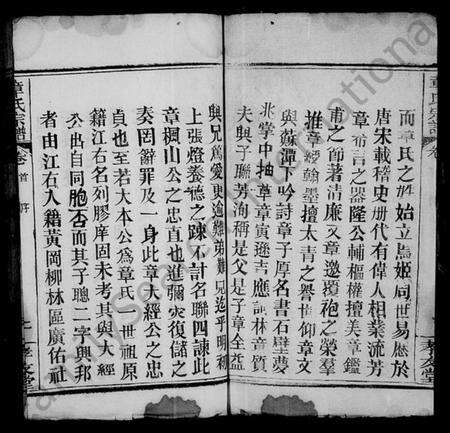 而章氏之姓始立焉姬同世易應於
唐宋載稽史册代有偉人相業流芳
章希言之器隆公輔樞權擅美章鑑
甫之節著清廉又章邀過袍之榮羣
推章經翰墨擅太青之譽世仰章文
與蘇潭下吟詩章子厚名書石壁夢
兆掌中抽草章寅遜吉應詞林音質
夫與子聯芳洵稱是父是子章全益
與兄爲愛更逾難弟難兄迨乎明初
上張燈養德之諫不計名聯四諫此
章楓山公之忠直也進彌災復儲之
奏罔辭罪及一身此章大經公之忠
貞也至若大本公爲章氏一世祖原
籍江右名列膠庠固未考其與大經
公出自同胞否而其子聰二字興邦
者由江右入籍黃岡柳林區廣佑社
章氏宗譜
卷首
序